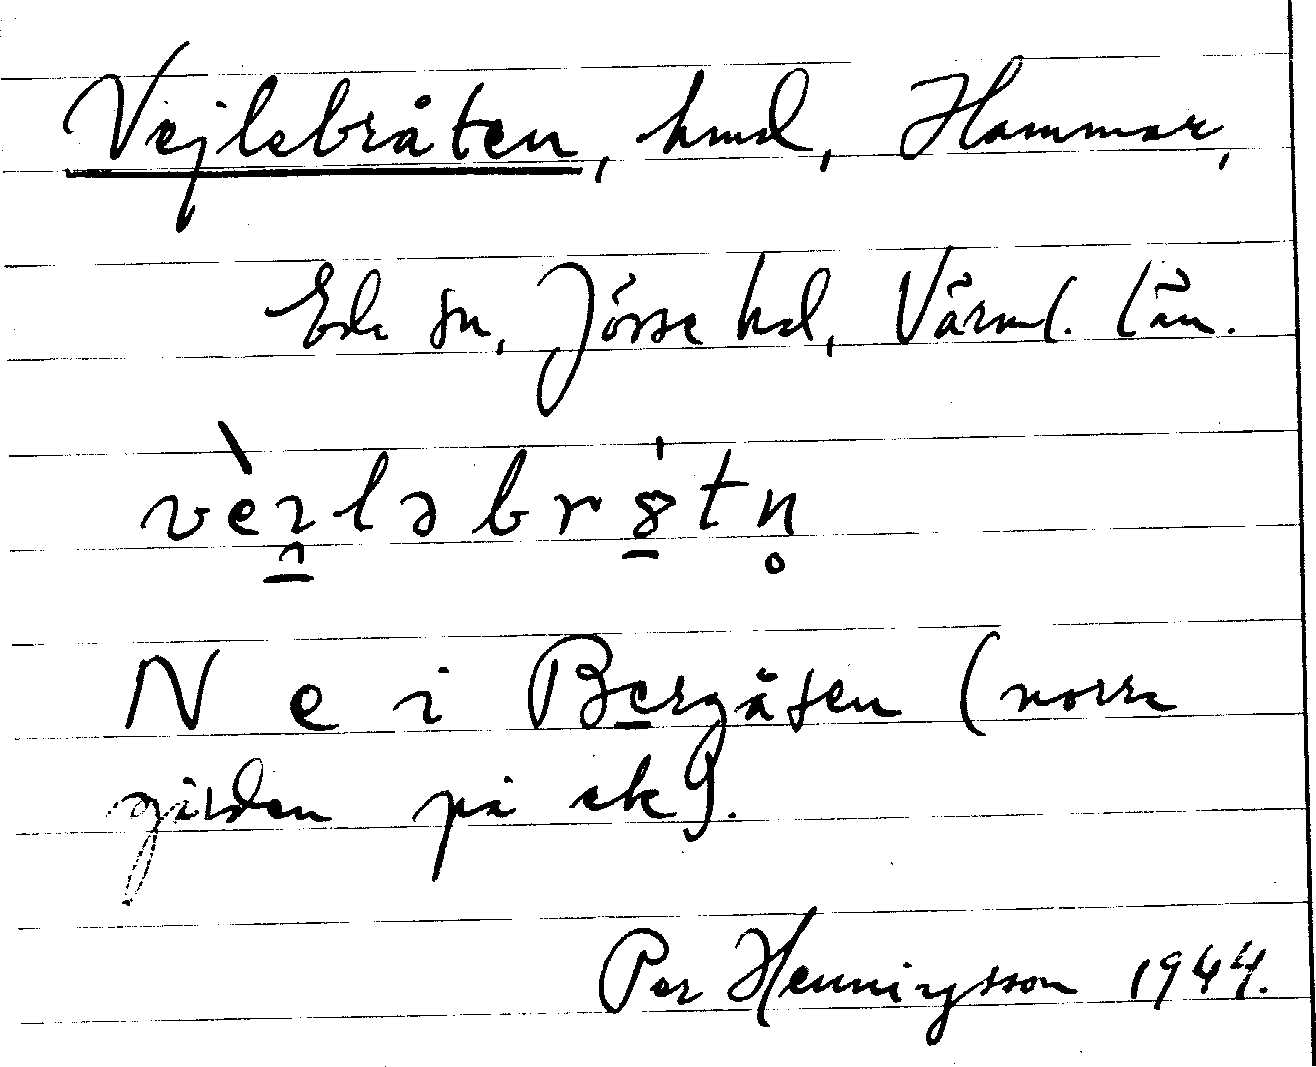 Vejlebråten, hmd, Hammar,
Eda sn, Jösse hd, Värml. län.
N e i Bergåsen (norra
gården på ek).
Per Henningsson 1944.